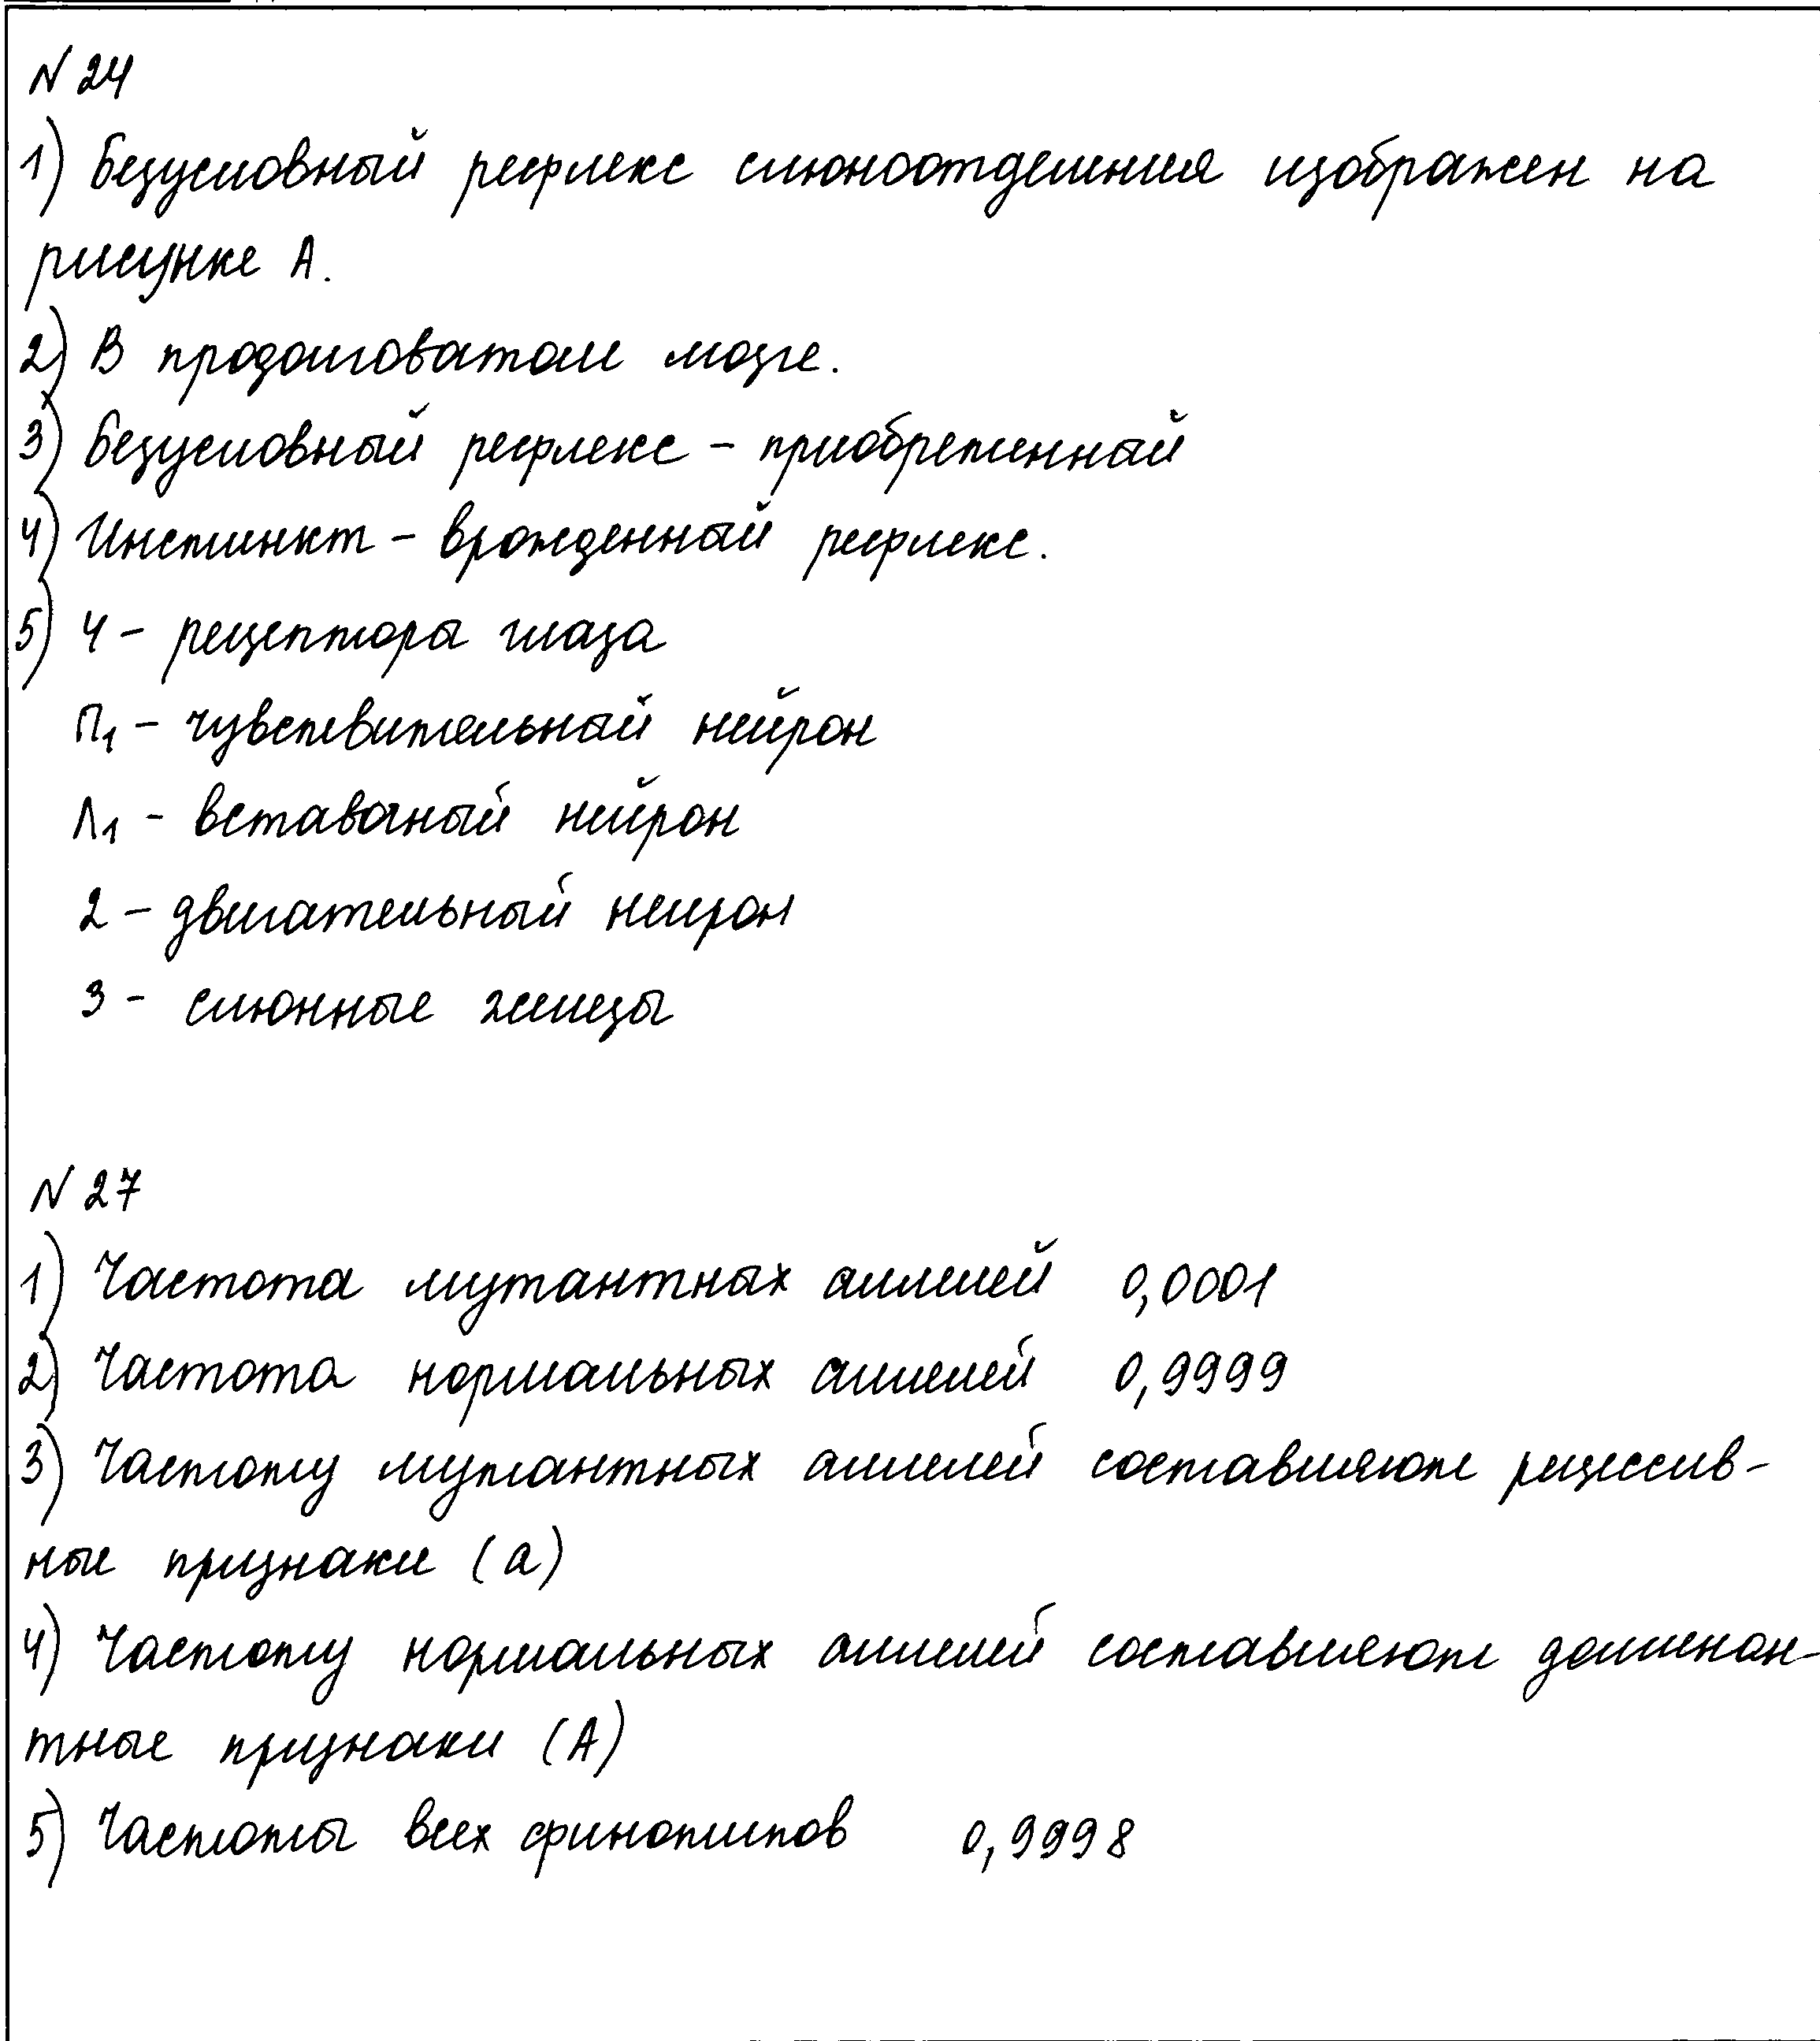 N 24
1) Безусловный рефлекс слюноотделения изображен на
рисунке А.
2) В продолговатом мозге.
3) Безусловный рефлекс – приобретенный
4) Инстинкт – врожденный рефлекс.
5) 4 – рецепторы глаза
П₁ – чувствительный нейрон
Л₁ – вставочный нейрон
2 – двигательный нейрон
3 – слюнные железы
N 27
1) Частота мутантных аллелей 0,0001
2) Частота нормальных аллелей 0,9999
3) Частоту мутантных аллелей составляют рецессив-
ные признаки (а)
4) Частоту нормальных аллелей составляют доминан-
тные признаки (А)
5) Частоты всех финотипов 0,9998